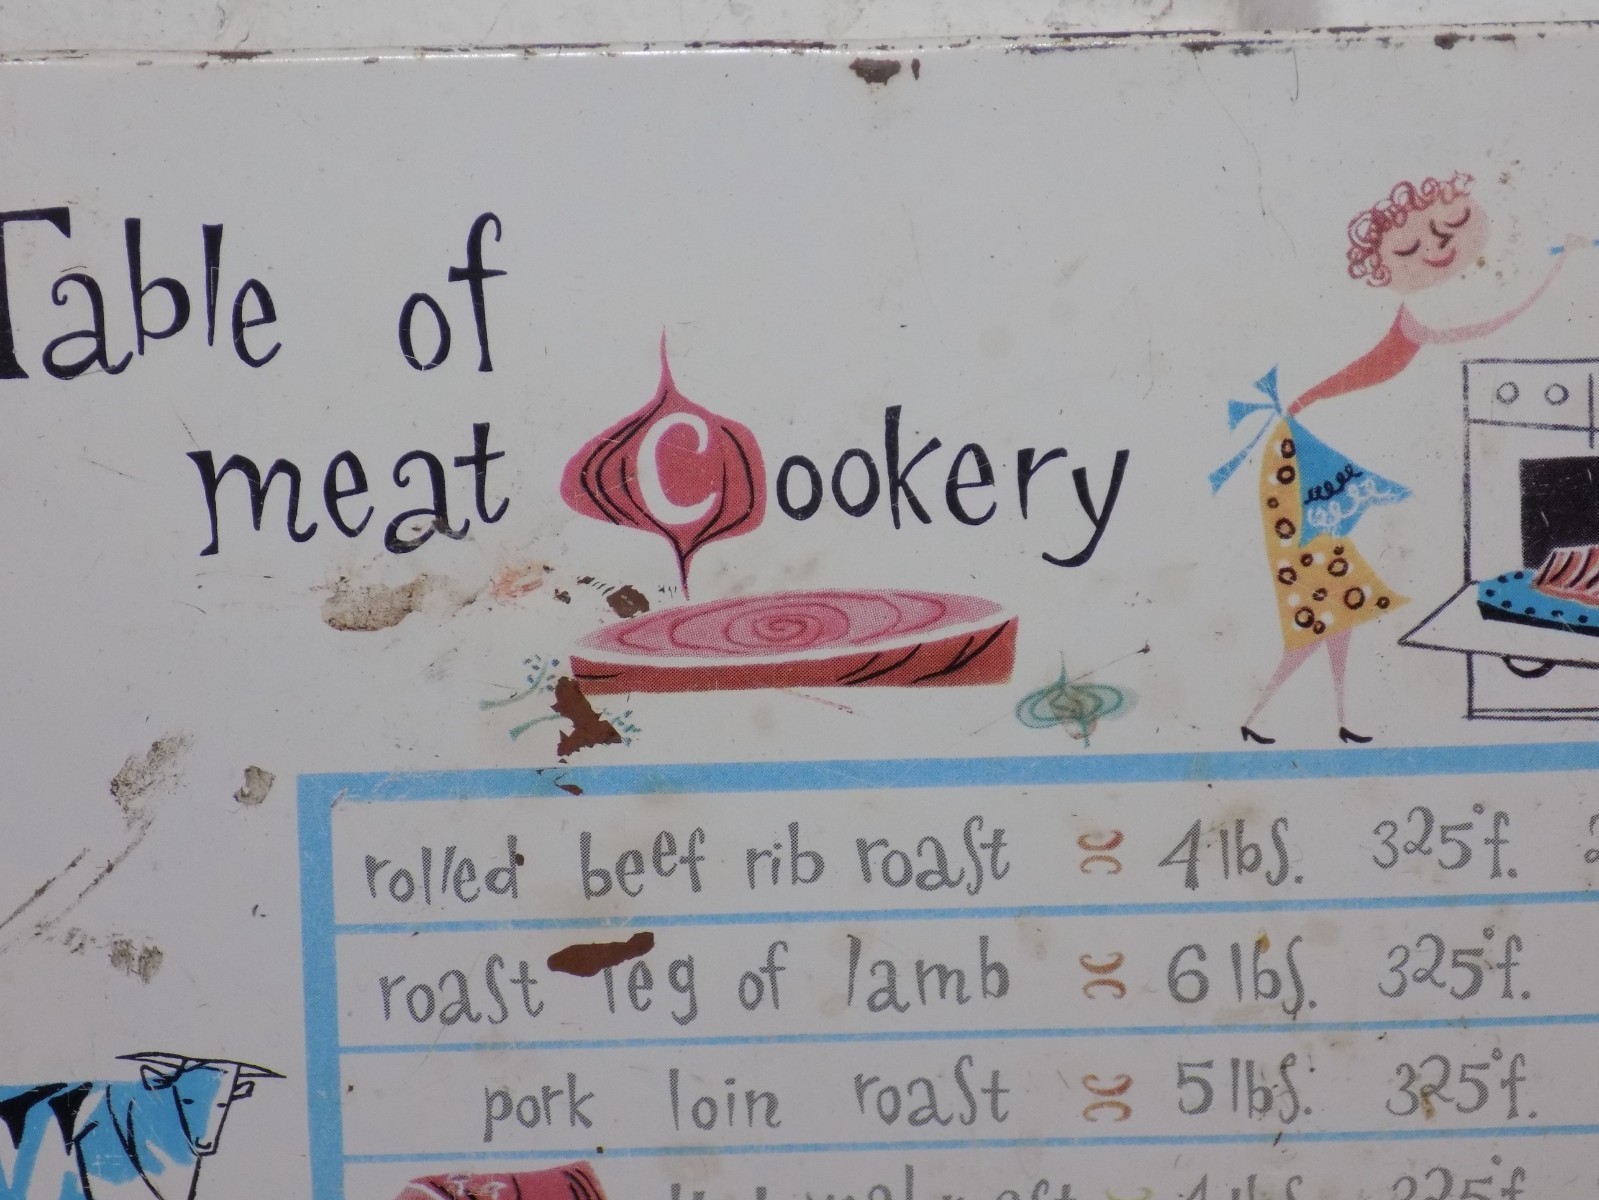 Table of
meat Cookery
rolled beef rib roast 4 lbs. 325°f.
roast leg of lamb 6 lbs. 325°f.
pork loin roast 5 lbs. 325°f.
4 lbs. 325°f.